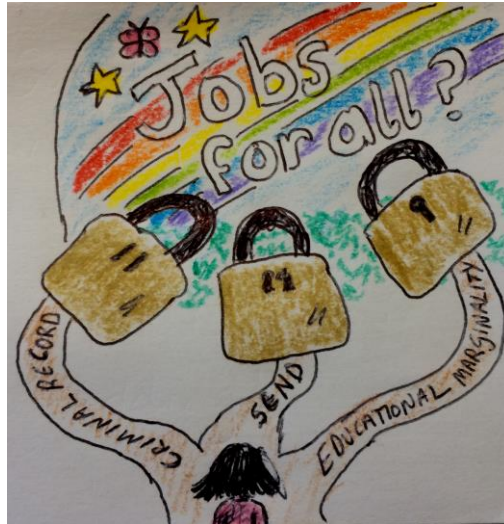 Jobs
for all?
CRIMINAL RECORD
SEND
EDUCATIONAL MARGINALITY